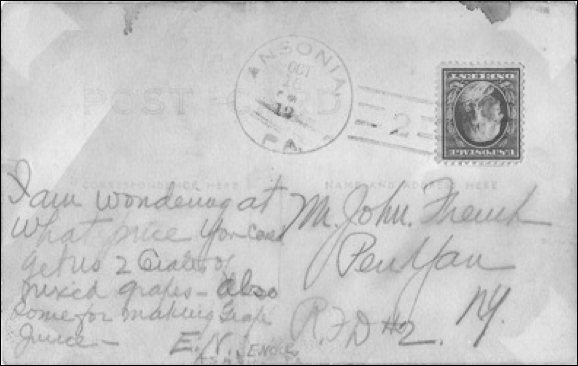 POST CARD
ANSONIA
OCT
19
PA.
2
U.S. POSTAGE
ONE CENT
CORRESPONDENCE HERE
NAME AND ADDRESS HERE
I am wondering at
what price you could
get us 2 Crates of
mixed grapes - also
some for making grape
juice -
E. N.
Mr. John French
Pen Yan
N.Y.
R.F.D #2.